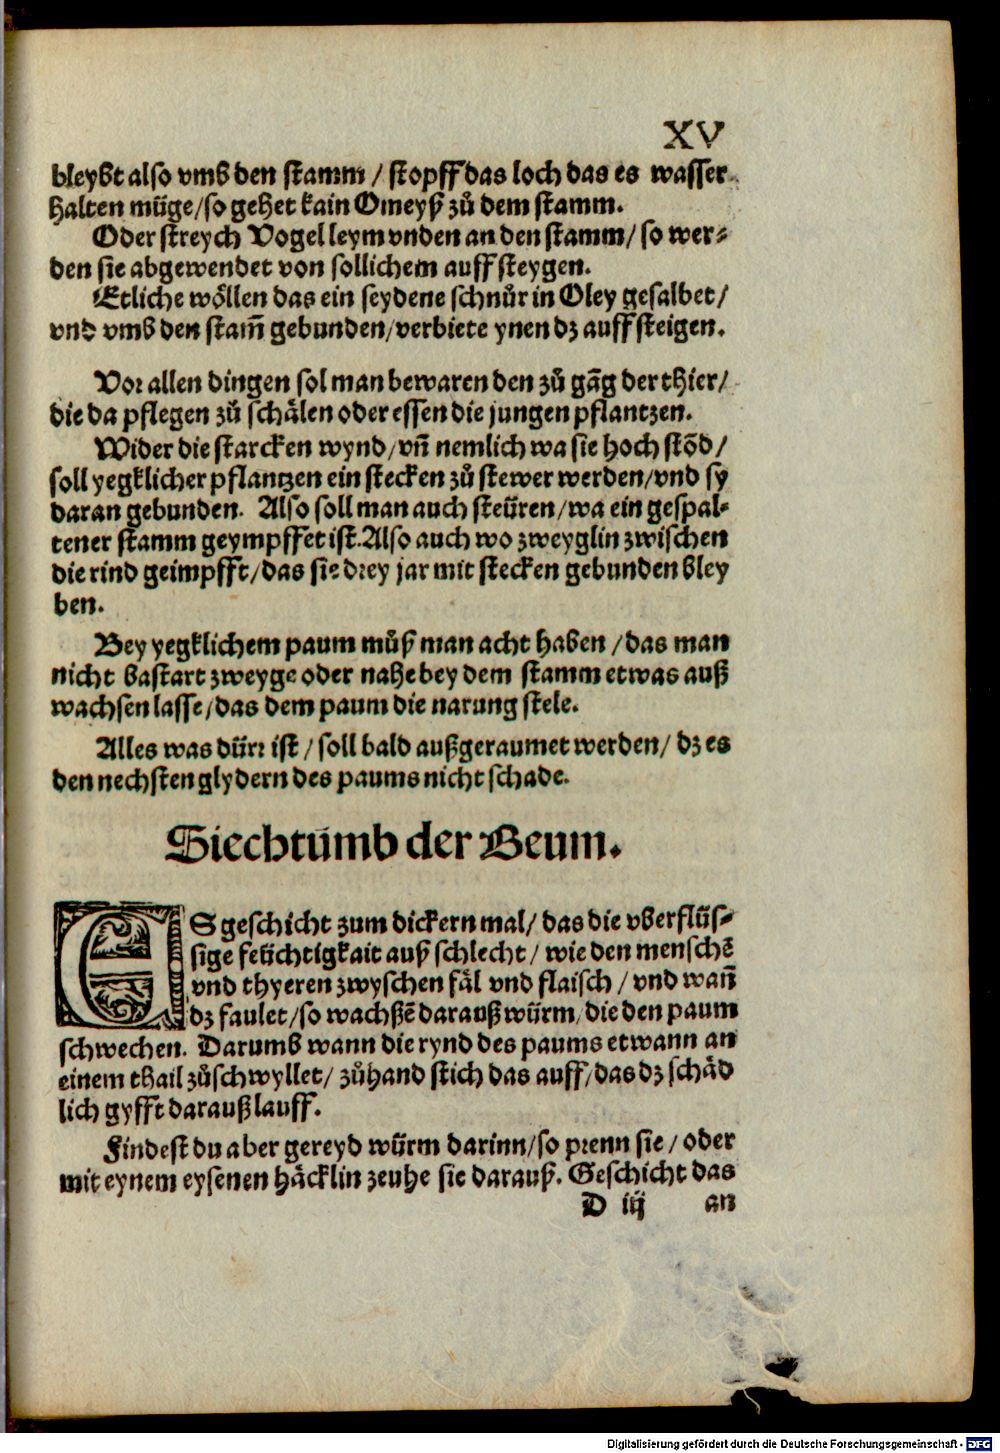 XV
bleybt also vmb den stamm / stopff das loch das es wasser
halten müge/so gehet kain Omeyß zů dem stamm.
Oder streych Vogel leym vnden an den stamm/ so wer⸗
den sie abgewendet von sollichem auff steygen.
Etliche wöllen das ein seydene schnůr in Oley gesalbet/
vnd vmb den stam̄ gebunden/verbiete ynen dz auff steigen.
Vor allen dingen sol man bewaren den zů gāg der thier/
die da pflegen zů schälen oder essen die jungen pflantzen.
Wider die starcken wynd/vn̄ nemlich wa sie hoch stōd/
soll yegklicher pflantzen ein stecken zů stewer werden/vnd sy
daran gebunden. Also soll man auch steüren/wa ein gespal⸗
tener stamm geympffet ist.Also auch wo zweyglin zwischen
die rind geimpfft/das sie drey jar mit stecken gebunden bley
ben.
Bey yegklichem paum můß man acht haben /das man
nicht bastart zweyge oder nahe bey dem stamm etwas auß
wachsen lasse/das dem paum die narung stele.
Alles was dürr ist / soll bald außgeraumet werden/ dz es
den nechsten glydern des paums nicht schade.
Siechtūmb der Beum.
ES geschicht zum dickern mal/ das die vberflüs⸗
sige feüchtigkait auß schlecht / wie den menschē
vnd thyeren zwyschen fäl vnd flaisch / vnd wan̄
dz faulet/so wachßē darauß würm/die den paum
schwechen. Darumb wann die rynd des paums etwann an
einem thail zůschwyllet/ zůhand stich das auff/das dz schäd
lich gyfft darauß lauff.
Findest du aber gereyd würm darinn/so prenn sie/ oder
mit eynem eysenen häcklin zeuhe sie darauß. Geschicht das
D iij an
Digitalisierung gefördert durch die Deutsche Forschungsgemeinschaft - DFG